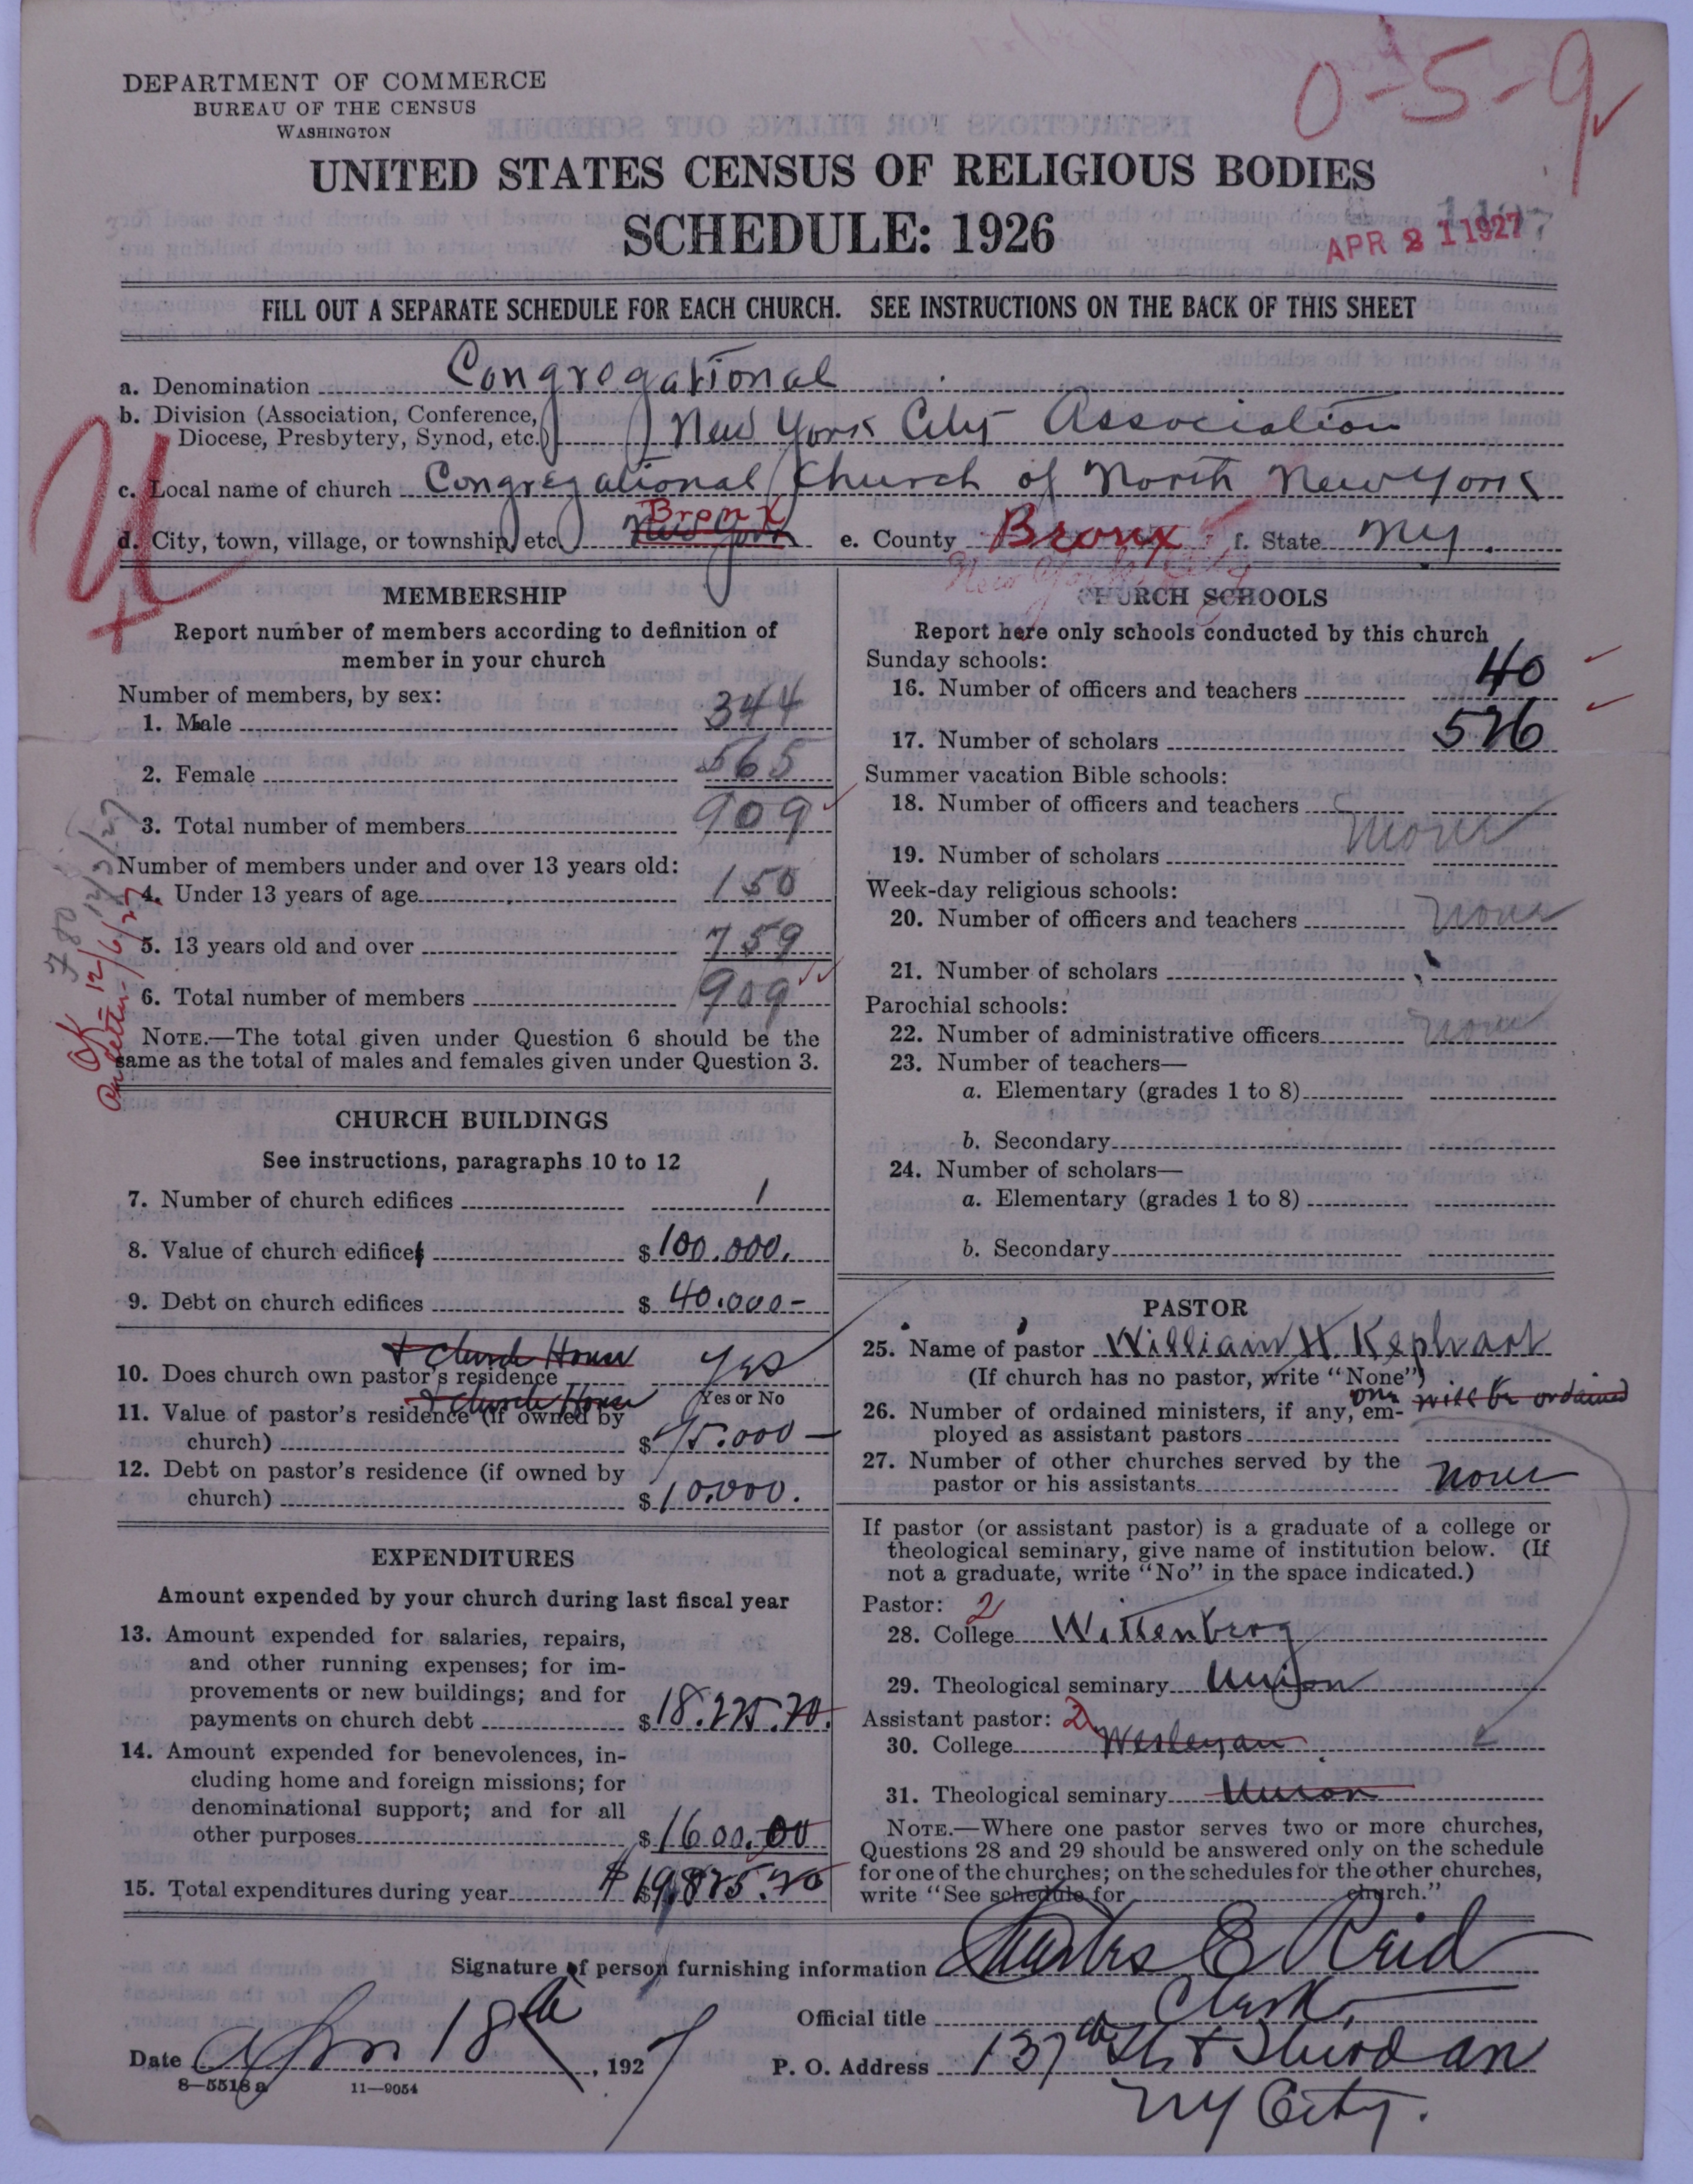 0-5-9
DEPARTMENT OF COMMERCE
BUREAU OF THE CENSUS
WASHINGTON
UNITED STATES CENSUS OF RELIGIOUS BODIES
SCHEDULE: 1926
APR 21 1927
FILL OUT A SEPARATE SCHEDULE FOR EACH CHURCH. SEE INSTRUCTIONS ON THE BACK OF THIS SHEET
a. Denomination Congregational
b. Division (Association, Conference,
Diocese, Presbytery, Synod, etc.) New York City Association
c. Local name of church Congregational Church of North New York
Bronx
d. City, town, village, or township, etc. New York e. County Bronx f. State NY.
New York City
MEMBERSHIP
Report number of members according to definition of
member in your church
Number of members, by sex:
1. Male 344
2. Female 565
3. Total number of members 909
Number of members under and over 13 years old:
4. Under 13 years of age 150
5. 13 years old and over 759
6. Total number of members 909
NOTE.—The total given under Question 6 should be the
same as the total of males and females given under Question 3.
OK 12/6/27
CHURCH BUILDINGS
See instructions, paragraphs 10 to 12
7. Number of church edifices 1
8. Value of church edifices $ 100.000.
9. Debt on church edifices $ 40.000-
+ Church House
10. Does church own pastor's residence yes
Yes or No
+ Church House
11. Value of pastor's residence (if owned by
church) $ 45.000 -
12. Debt on pastor's residence (if owned by
church) $ 10.000.
EXPENDITURES
Amount expended by your church during last fiscal year
13. Amount expended for salaries, repairs,
and other running expenses; for im-
provements or new buildings; and for
payments on church debt $
14. Amount expended for benevolences, in-
cluding home and foreign missions; for
denominational support; and for all
other purposes $ 1600.00
15. Total expenditures during year $
CHURCH SCHOOLS
Report here only schools conducted by this church
Sunday schools:
16. Number of officers and teachers 40
17. Number of scholars 526
Summer vacation Bible schools:
18. Number of officers and teachers
none
19. Number of scholars
Week-day religious schools:
20. Number of officers and teachers none
21. Number of scholars "
Parochial schools:
22. Number of administrative officers none
23. Number of teachers—
a. Elementary (grades 1 to 8)
b. Secondary
24. Number of scholars—
a. Elementary (grades 1 to 8)
b. Secondary
PASTOR
25. Name of pastor William H Kephart
(If church has no pastor, write "None")
one will be ordained
26. Number of ordained ministers, if any, em-
ployed as assistant pastors
27. Number of other churches served by the
pastor or his assistants none
If pastor (or assistant pastor) is a graduate of a college or
theological seminary, give name of institution below. (If
not a graduate, write "No" in the space indicated.)
Pastor: 2
28. College Wittenberg
29. Theological seminary Union
Assistant pastor: 2
30. College Wesleyan
31. Theological seminary Union
NOTE.—Where one pastor serves two or more churches,
Questions 28 and 29 should be answered only on the schedule
for one of the churches; on the schedules for the other churches,
write "See schedule for church."
Signature of person furnishing information Charles E Reid
Official title Clerk.
Date April 18th, 1927
P. O. Address 137th St & Third av
NY City.
8—5518 a 11—9054